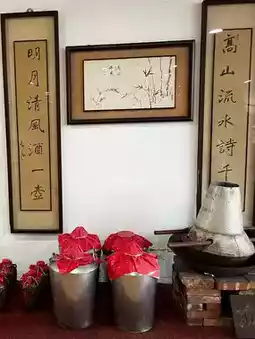 高山流水詩千
明月清風酒一壺